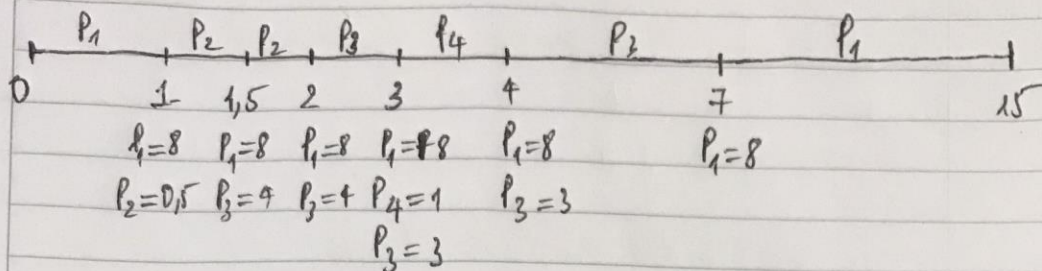 P₁ P₂ P₂ P₃ P₄ P₃ P₁
0 1 1,5 2 3 4 7 15
P₁=8 P₁=8 P₁=8 P₁=8 P₁=8 P₁=8
P₂=0,5 P₃=4 P₃=4 P₄=1 P₃=3
P₃=3